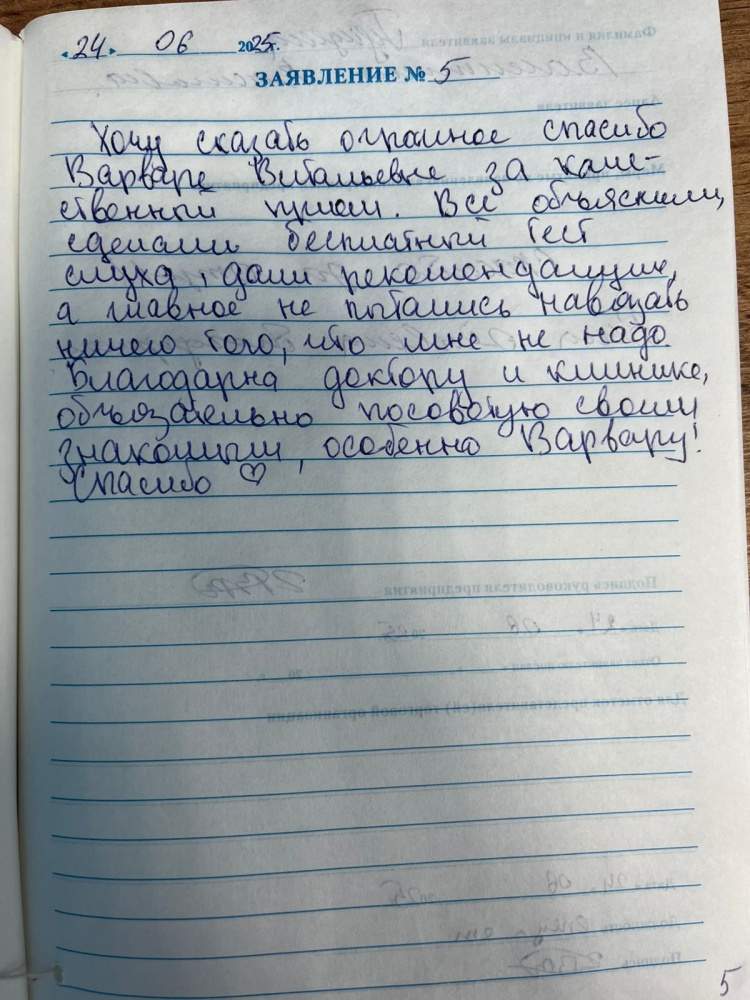 «24» 06 2025г.
ЗАЯВЛЕНИЕ № 5
Хочу сказать огромное спасибо
Варваре Витальевне за каче-
ственный приём. Всё объяснили,
сделали бесплатный тест
слуха, дали рекомендации,
а главное не пытались навязать
ничего того, что мне не надо
Благодарна доктору и клинике,
объязательно посоветую своим
знакомым, особенно Варвару!
Спасибо ♡
5